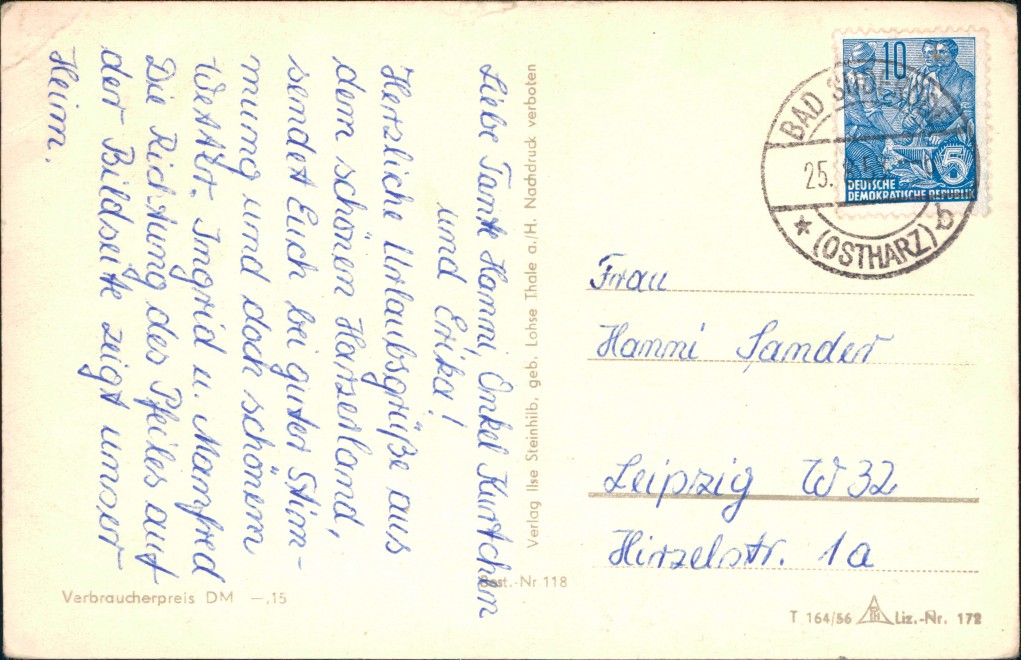 Liebe Tante Hanni, Onkel Kurtchen
und Erika!
Herzliche Urlaubsgrüße aus
dem schönen Harzerland,
sendet Euch bei guter Stim-
mung und doch schönem
Wetter. Ingrid u. Manfred
Die Richtung des Pfeiles auf
der Bildseite zeigt unser
Heim.
Verbraucherpreis DM —,15
Verlag Ilse Steinhilb, geb. Lohse Thale a./H. Nachdruck verboten
Best.-Nr 118
10
5
DEUTSCHE
DEMOKRATISCHE REPUBLIK
BAD SUDERODE
25.
(OSTHARZ)
b
Frau
Hanni Sander
Leipzig W 32
Hirzelstr. 1a
T 164/56 Liz.-Nr. 172